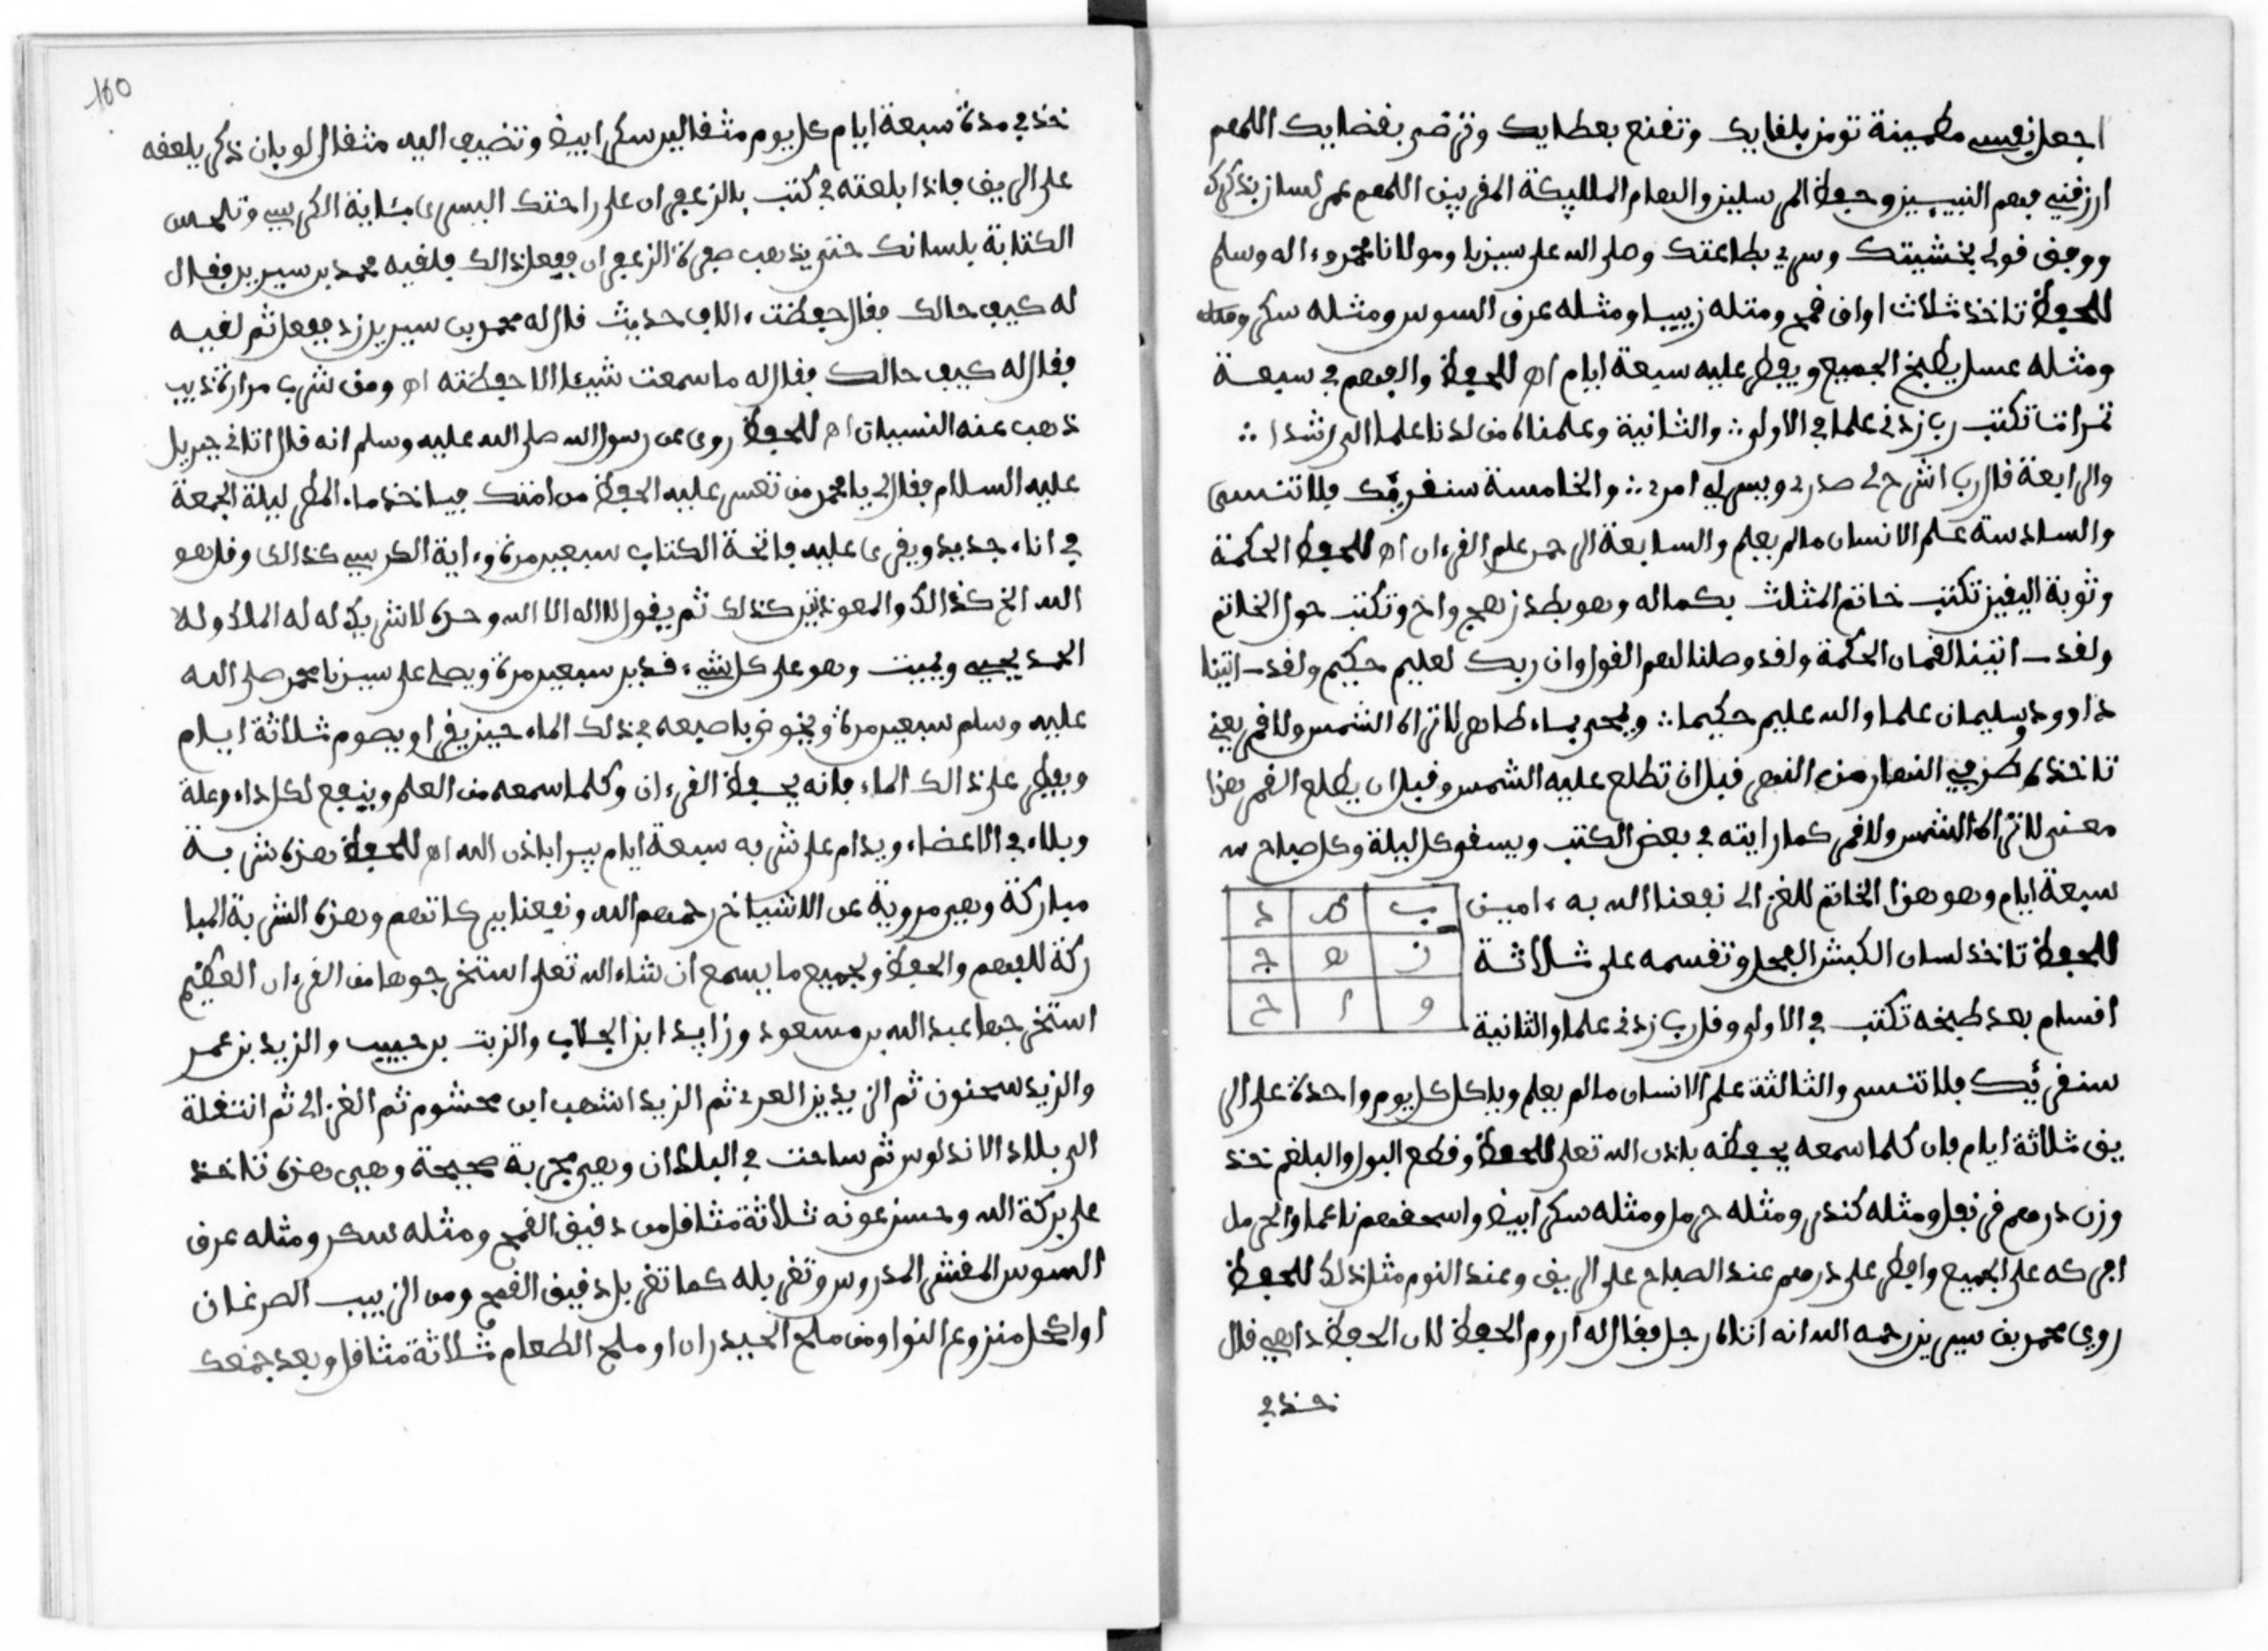 اجعل نفسي مطمينة تومن بلقايك وتقنع بعطايك وترضى بقضايك اللهم
ارزقني فهم النبييين وحفظ المرسلين والهام الملايكة المقربين اللهم عمر لسان بذكرك
ووفق قولي بخشيتك وسري بطاعتك وصلى الله على سيدنا ومولانا محمد وءاله وسلم
للحفظ تاخذ ثلاث اواق قمح ومثله زبيبا ومثله عرق السوس ومثله سكر
ومثله عسل يطبخ الجميع ويفطر عليه سبعة ايام اه للحفظ والفهم في سبعة
تمرات تكتب رب زدني علما في الاولى ∴ والثانية وعلمناه من لدنا علما الى رشدا ∴
والرابعة قال رب اشرح لي صدري ويسر لي امري ∴ والخامسة سنقريك فلا تنسى
والسادسة علم الانسان مالم يعلم والسابعة الرحمن علم القرءان اه للحفظ الحكمة
وثوبة اليقين تكتب خاتم المثلث بكماله وهو بطد زهج واح وتكتب حول الخاتم
ولقد اتينا لقمان الحكمة ولقد وصلنا لهم القول وان ربك لعليم حكيم ولقد اتينا
داوود وسليمان علما والله عليم حكيما ∴ ويمحى بماء طاهر لا تراه الشمس ولا قمر يعني
تاخذه طرفي النهار من النهر قبل ان تطلع عليه الشمس وقبل ان يطلع القمر هذا
معنى لا تراه الشمس ولا قمر كما رايته في بعض الكتب ويسقى كل ليلة وكل صباح
سبعة ايام وهو هذا الخاتم للغزالي نفعنا الله به ءامين
ب ط د
للحفظ تاخذ لسان الكبش الفحل وتقسمه على ثلاثة
ز ه ج
اقسام بعد طبخه تكتب في الاولى وقل رب زدني علما والثانية
و ا ح
سنقريك فلا تنسى والثالثة علم الانسان مالم يعلم وياكل كل يوم واحدة على الر
يق ثلاثة ايام فان كلما سمعه يحفظه باذن الله تعلى للحفظ وقطع البول والبلغم خذ
وزن درهم قرنفل ومثله كندر ومثله حرمل ومثله سكر ابيض واسحقهم ناعما والحرمل
افركه على الجميع وافطر على درهم عند الصباح على الريق وعند النوم مثل ذلك للحفظ
روي محمد بن سيرين رحمه الله انه اتاه رجل فقال له اروم الحفظ لان الحفظ دابي قال
خذ في
160
خذ في مدة سبعة ايام كل يوم مثقالين سكر ابيض وتضيف اليه مثقال لوبان ذكر يلعقه
على الريق فاذا بلعته في كتب بالزعفران على راحتك اليسرى بئاية الكرسي وتلحس
الكتابة بلسانك حتى يذهب صفرة الزعفران ففعل ذالك فلقيه محمد بن سيرين فقال
له كيف حالك فقال حفظت ءالاف حديث قال له محمد بن سيرين زد ففعل ثم لقيه
فقال له كيف حالك فقال له ما سمعت شيئا الا حفظته اه ومن شرب مرارة ذيب
ذهب عنه النسيان اه للحفظ روي عن رسول الله صلى الله عليه وسلم انه قال اتاني جبريل
عليه السلام فقال لي يا محمد من تعسر عليه الحفظ من امتك فياخذ ماء المطر ليلة الجمعة
في اناء جديد ويقرى عليه فاتحة الكتاب سبعين مرة وءاية الكرسي كذالك وقل هو
الله الخ كذالك والمعوذتين كذلك ثم يقول لا اله الا الله وحده لا شريك له له الملك وله
الحمد يحيي ويميت وهو على كل شيء قدير سبعين مرة ويصلي على سيدنا محمد صلى الله
عليه وسلم سبعين مرة ويخوض باصبعه في ذلك الماء حين يقرا ويصوم ثلاثة ايام
ويفطر على ذالك الماء فانه يحفظ القرءان وكلما سمعه من العلم وينفع لكل داء وعلة
وبلاء في الاعضاء ويدام على شربه سبعة ايام يبرا باذن الله اه للحفظ هذه شربة
مباركة وهي مروية عن الاشياخ رحمهم الله ونفعنا ببركاتهم وهذه الشربة المبا
ركة للفهم والحفظ ولجميع ما يسمع ان شاء الله تعلى استخرجوها من القرءان العظيم
استخرجها عبد الله بن مسعود وزايد ابن الجلاب والزيت بن حبيب والزيد بن عمر
والزيد سحنون ثم الزيد بن العربي ثم الزيد اشهب ابن محشوم ثم الغزالي ثم انتقلة
الى بلاد الاندلوس ثم ساحت في البلدان وهي مجربة صحيحة وهي هذه تاخذ
على بركة الله وحسن عونه ثلاثة مثاقل من دقيق القمح ومثله سكر ومثله عرق
السوس المقشر المدروس وتغربله كما تغربل دقيق القمح ومن الزبيب الصرغان
اواكحل منزوع النوا ومن ملح الحيدران او ملح الطعام ثلاثة مثاقل وبعد جمعك